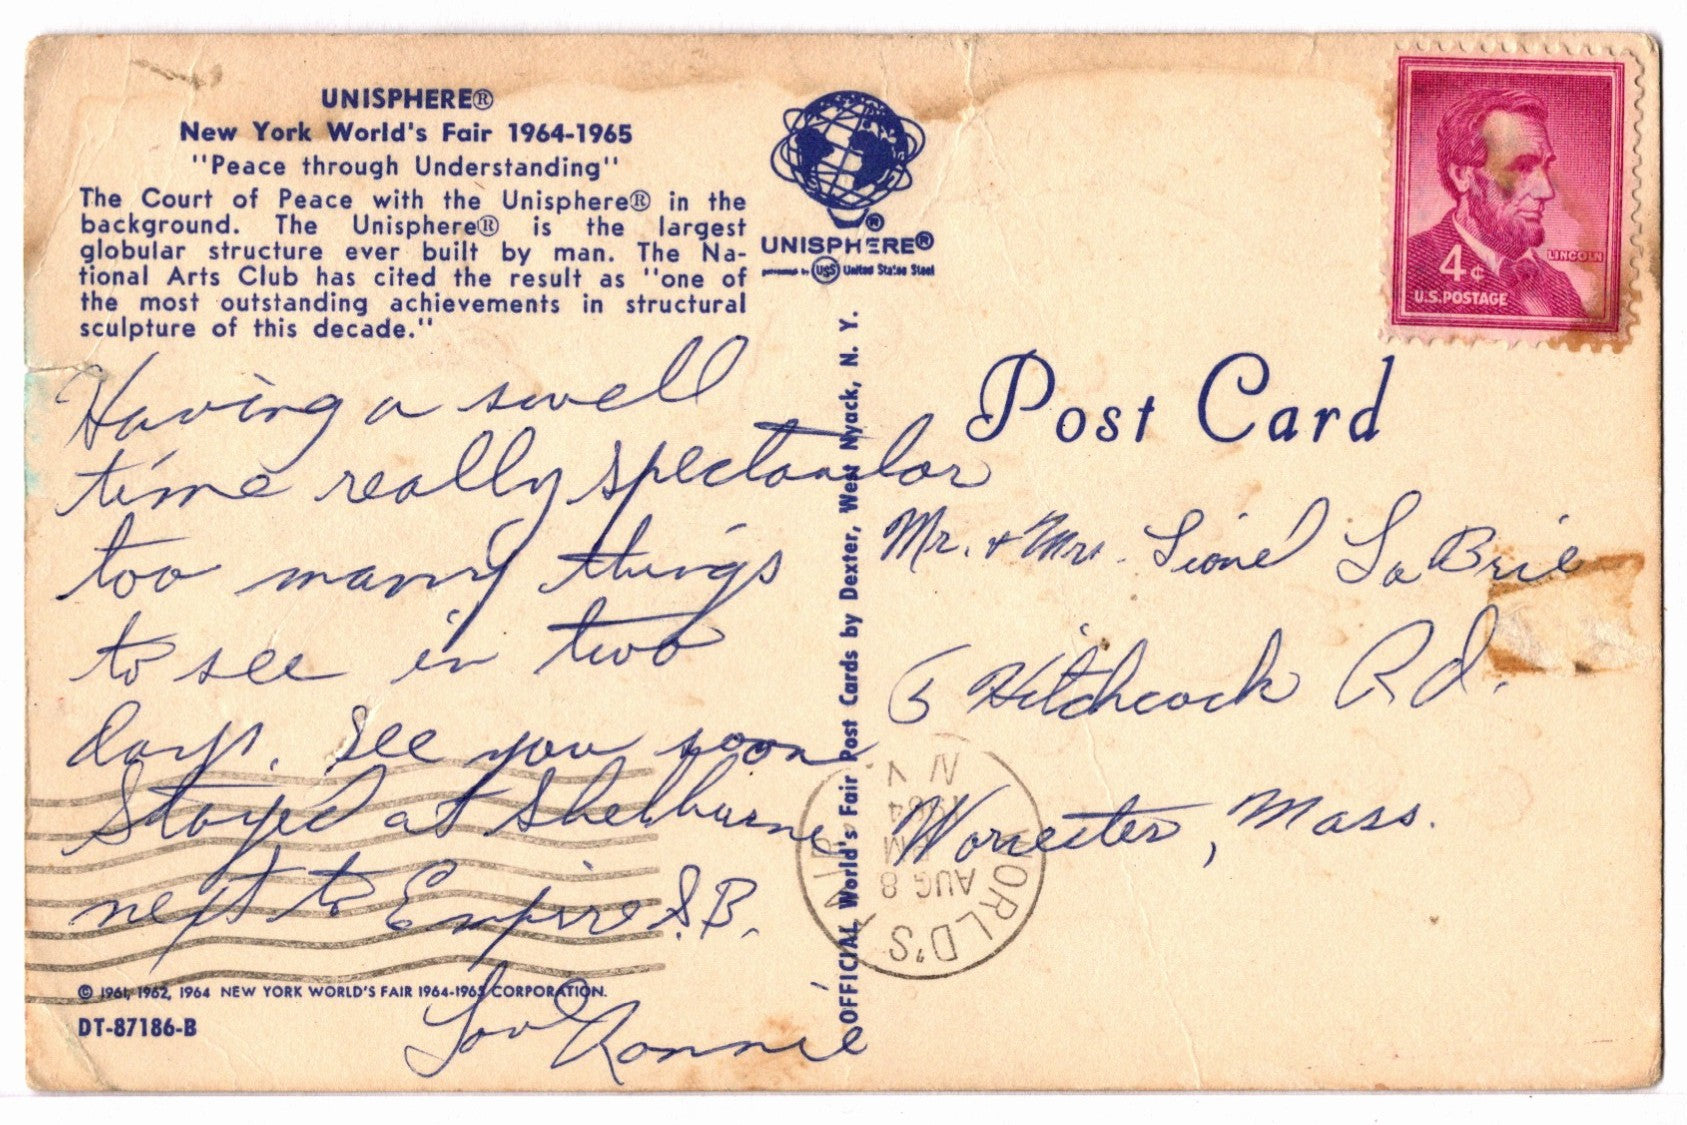 UNISPHERE®
New York World's Fair 1964-1965
"Peace through Understanding"
The Court of Peace with the Unisphere® in the
background. The Unisphere® is the largest
globular structure ever built by man. The Na-
tional Arts Club has cited the result as "one of
the most outstanding achievements in structural
sculpture of this decade."
®
UNISPHERE®
presented by USS United States Steel
Having a swell
time really spectacular
too many things
to see in two
days. See you soon
Stayed at Shelburne
next to Empire S.B.
Love Ronnie
© 1961, 1962, 1964 NEW YORK WORLD'S FAIR 1964-1965 CORPORATION.
DT-87186-B
OFFICIAL World's Fair Post Cards by Dexter, West Nyack, N. Y.
4¢
LINCOLN
U.S. POSTAGE
Post Card
Mr. & Mrs. Lionel LaBrie
5 Hitchcock Rd.
Worcester, Mass.
WORLD'S FAIR
AUG 8
PM
1964
N Y